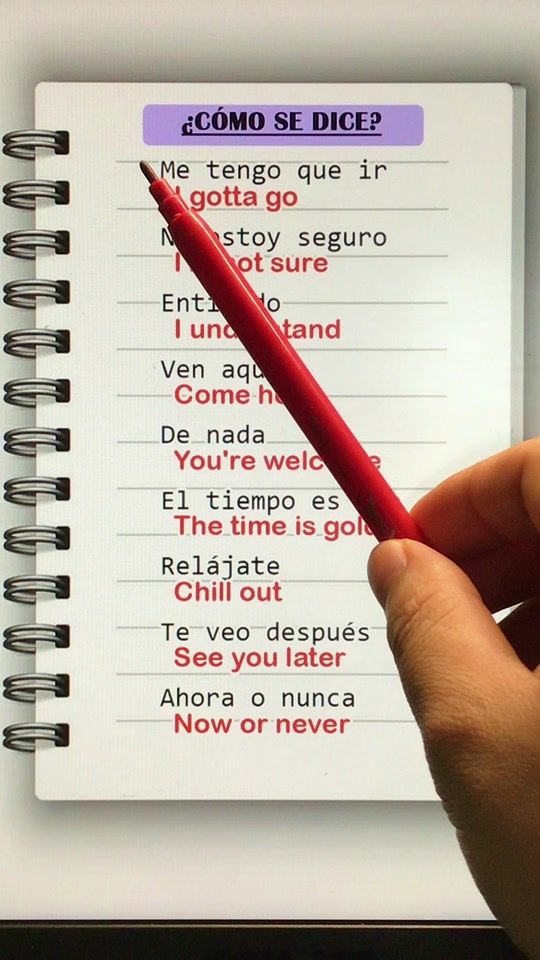 ¿CÓMO SE DICE?
Me tengo que ir
I gotta go
estoy seguro
not sure
Entiendo
I understand
Ven aquí
Come here
De nada
You're welcome
El tiempo es
The time is gold
Relájate
Chill out
Te veo después
See you later
Ahora o nunca
Now or never